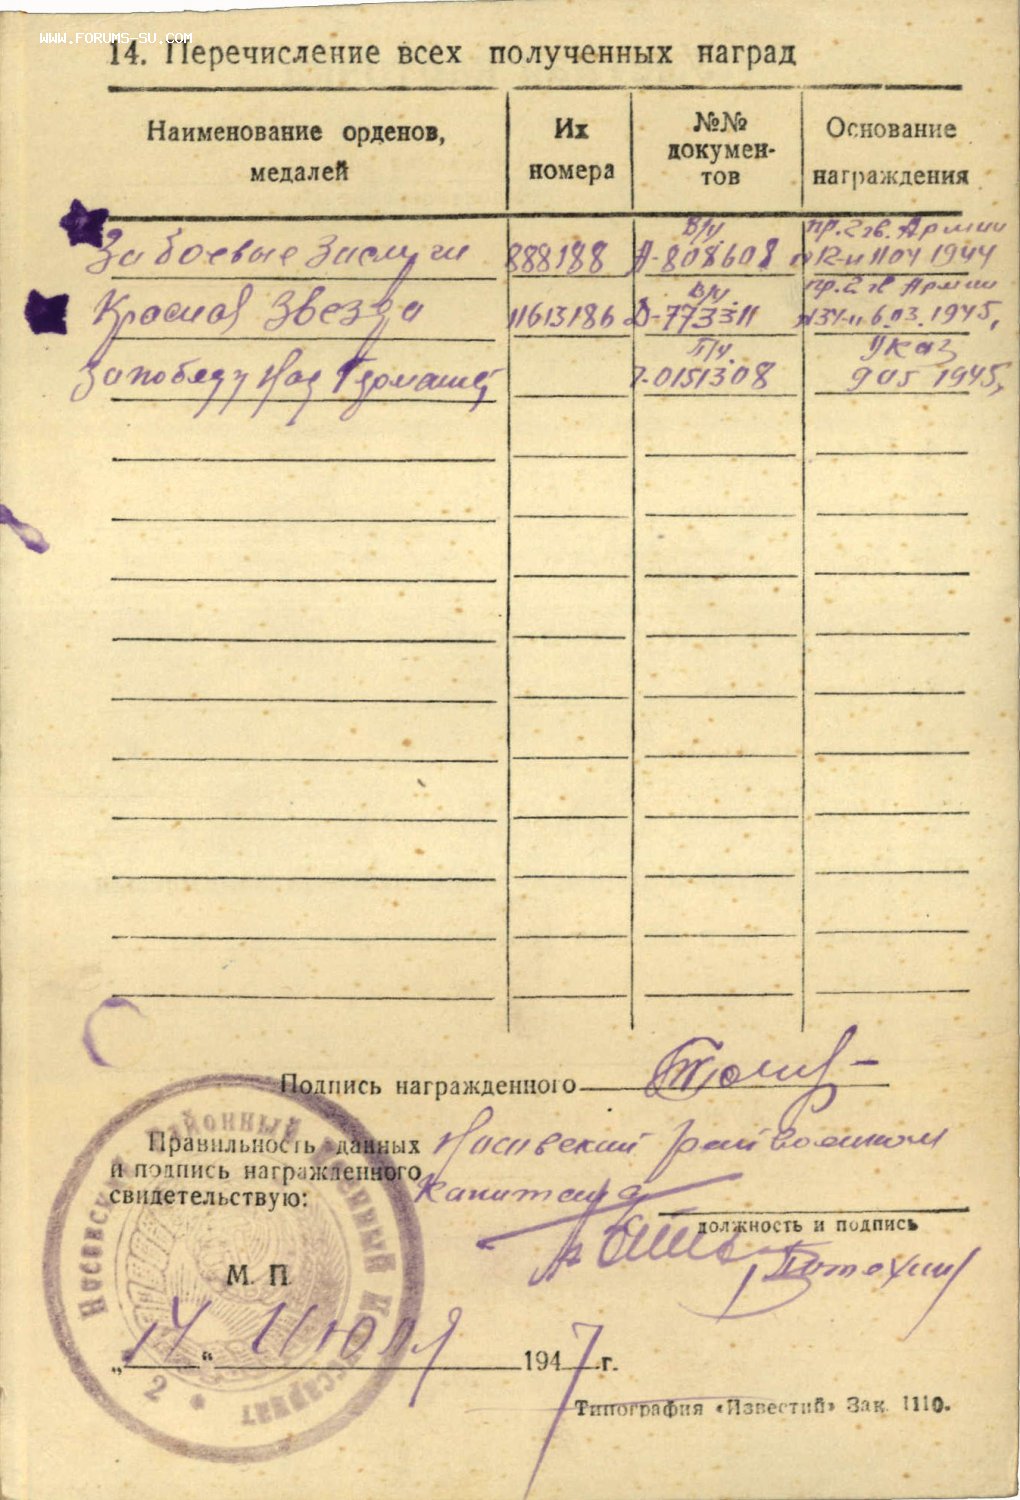 WWW.FORUMS-SU.COM
14. Перечисление всех полученных наград
Наименование орденов, медалей
Их номера
№№ докумен-тов
Основание награждения
За боевые Заслуги 888188 В/у А-808608 пр. 2 гв. Армии 11 04 1944
Красная Звезда 11613186 В/у Д-773311 пр. 2 гв Армии 6.03.1945,
За победу Над Германией П/у 0151308 Указ 9 05 1945,
Подпись награжденного
Правильность данных
и подпись награжденного
свидетельствую:
Носовский райвоенком
Капитан
должность и подпись
Потехин
М. П.
„14“ Июля 1947 г.
Носовский районный военный комиссариат
2
Типография «Известий» Зак. 1110.